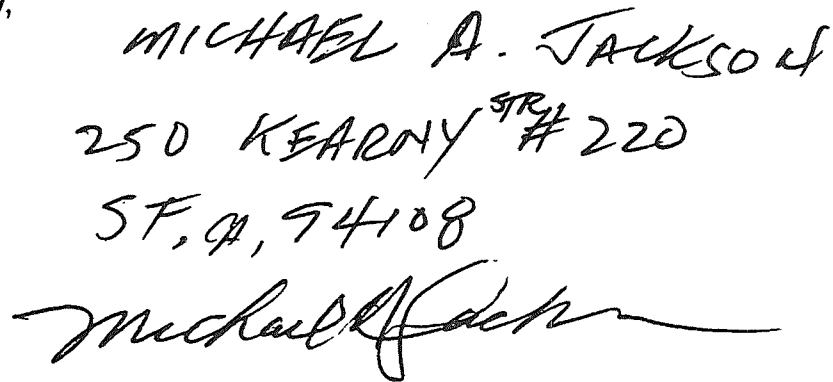 MICHAEL A. JACKSON
250 KEARNY STR, # 220
SF, CA, 94108
Michael A Jackson